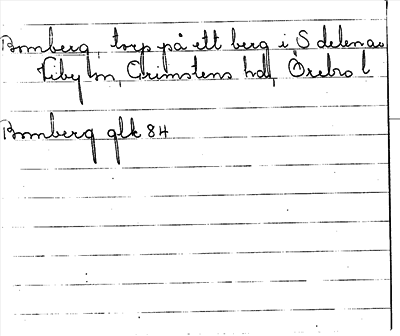 Bromberg, torp på ett berg i S delen av
Viby sn, Grimstens hd, Örebro l
Bromberg glk 84